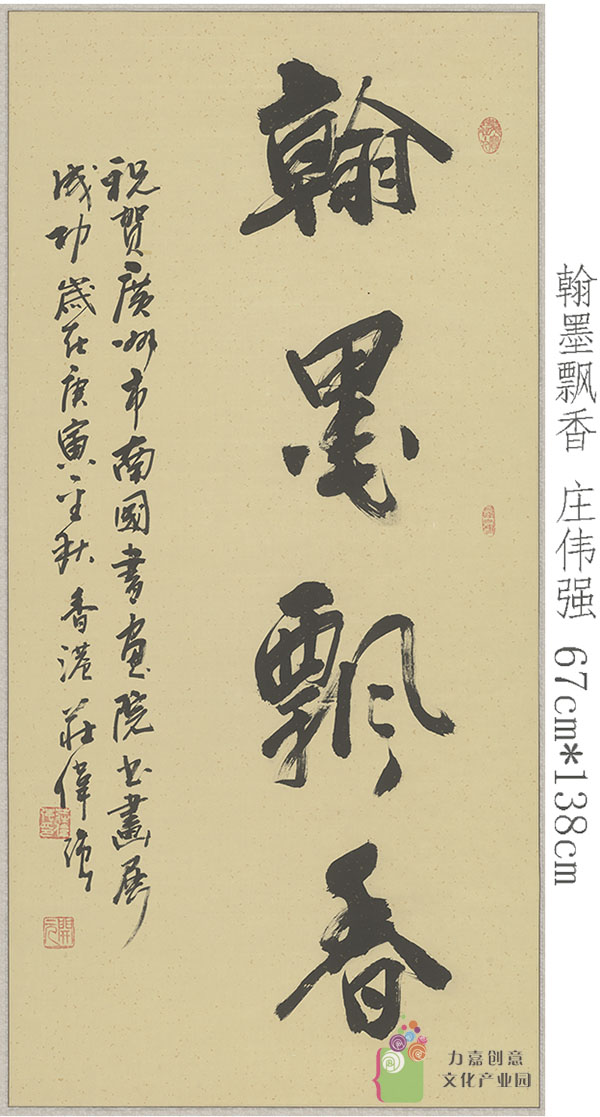 翰墨飘香
祝賀廣州市南國書画院书畫展
成功歲在庚寅金秋香港莊偉强
翰墨飘香 庄伟强 67cm*138cm
力嘉创意
文化产业园